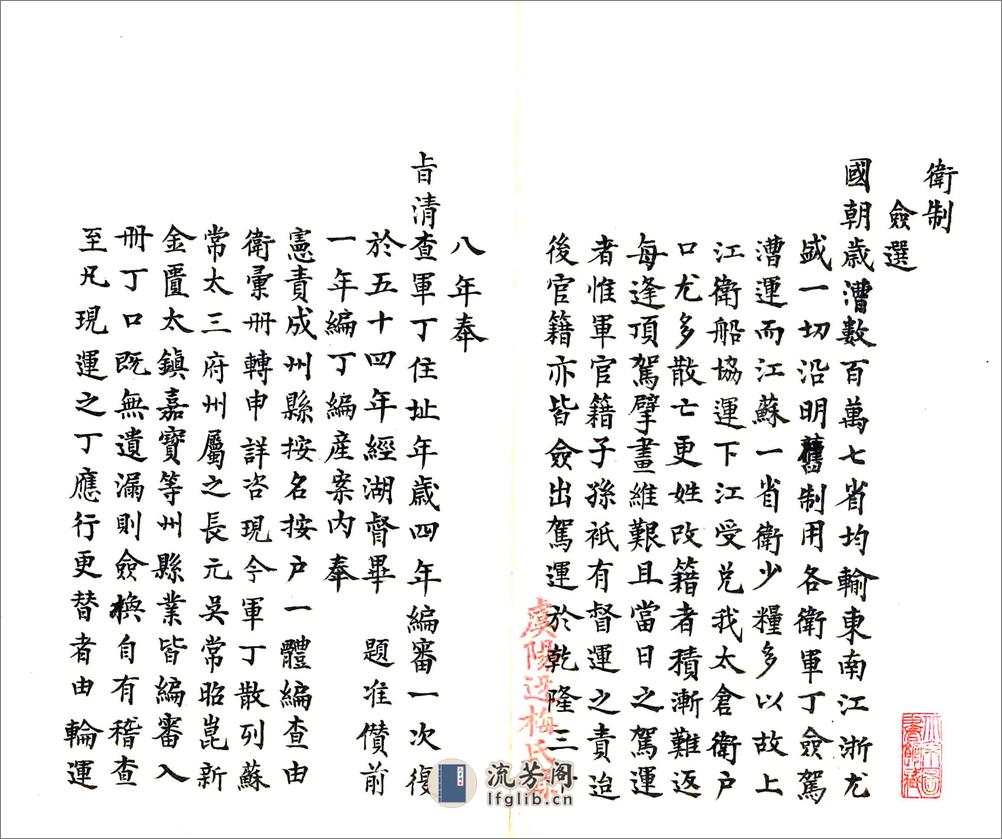 衛制
僉選
國朝歲漕數百萬七省均輸東南江浙尤
盛一切沿明舊制用各衛軍丁僉駕
漕運而江蘇一省衛少糧多以故上
江衛船協運下江受兌我太倉衛戶
口尤多散亡更姓改籍者積漸難返
每逢頂駕擘畫維艱且當日之駕運
者惟軍官籍子孫衹有督運之責迨
後官籍亦皆僉出駕運於乾隆三十
八年奉
旨清查軍丁住址年歲四年編審一次復
於五十四年經湖督畢 題准儹前
一年編丁編產案内奉
憲責成州縣按名按戶一體編查由
衛彙冊轉申詳咨現今軍丁散列蘇
常太三府州屬之長元吳常昭崑新
金匱太鎮嘉寶等州縣業皆編審入
冊丁口既無遺漏則僉換自有稽查
至凡現運之丁應行更替者由輪運
虞陽邊梅氏錄
流芳阁
lfglib.cn